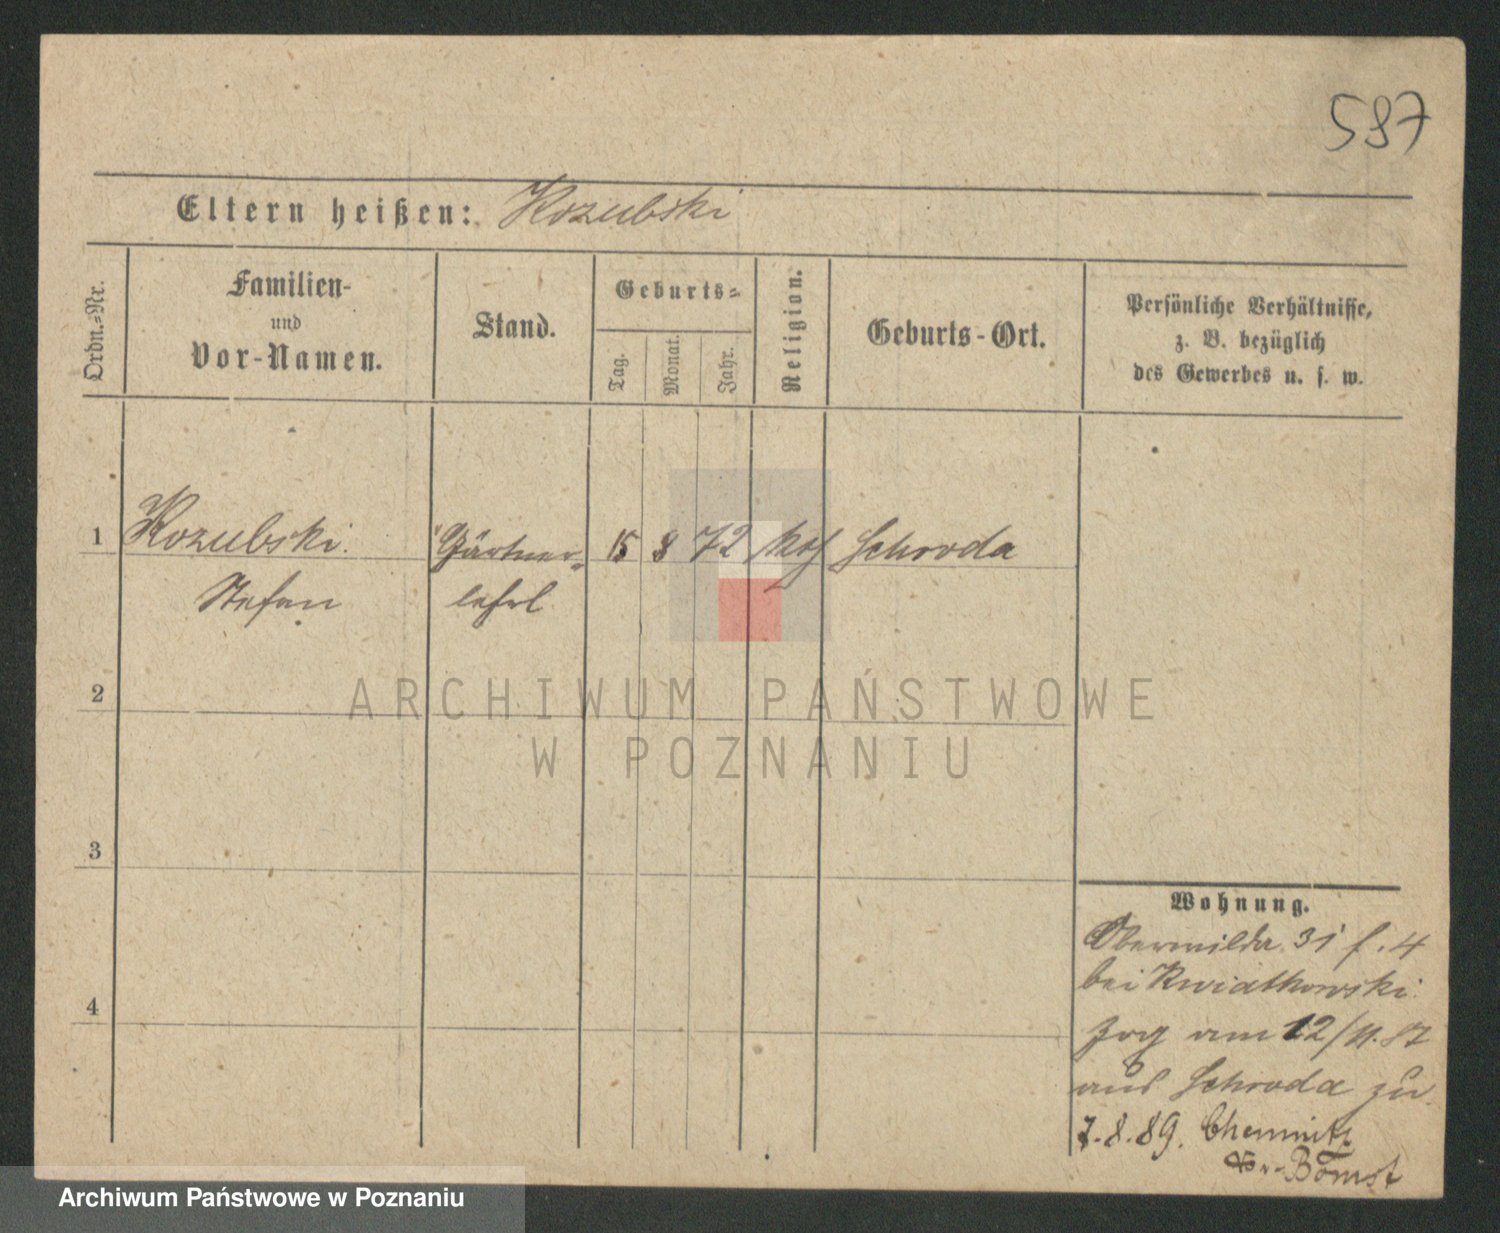 587
Eltern heißen: Kozubski
Ordn.-Nr.
Familien-
und
Vor-Namen.
Stand.
Geburts-
Tag.
Monat.
Jahr.
Religion.
Geburts-Ort.
Persönliche Verhältnisse,
z. B. bezüglich
des Gewerbes u. s. w.
1 Kozubski. Gärtner- 15 8 72 kth Schroda
Stefan lehrl
2
ARCHIWUM PAŃSTWOWE
W POZNANIU
3
Wohnung.
Oberwilda 31 f. 4
bei Kwiatkowski.
4
Zog am 12/11.87
aus Schroda zu.
7.8.89. Chemnitz
Bomst
Archiwum Państwowe w Poznaniu